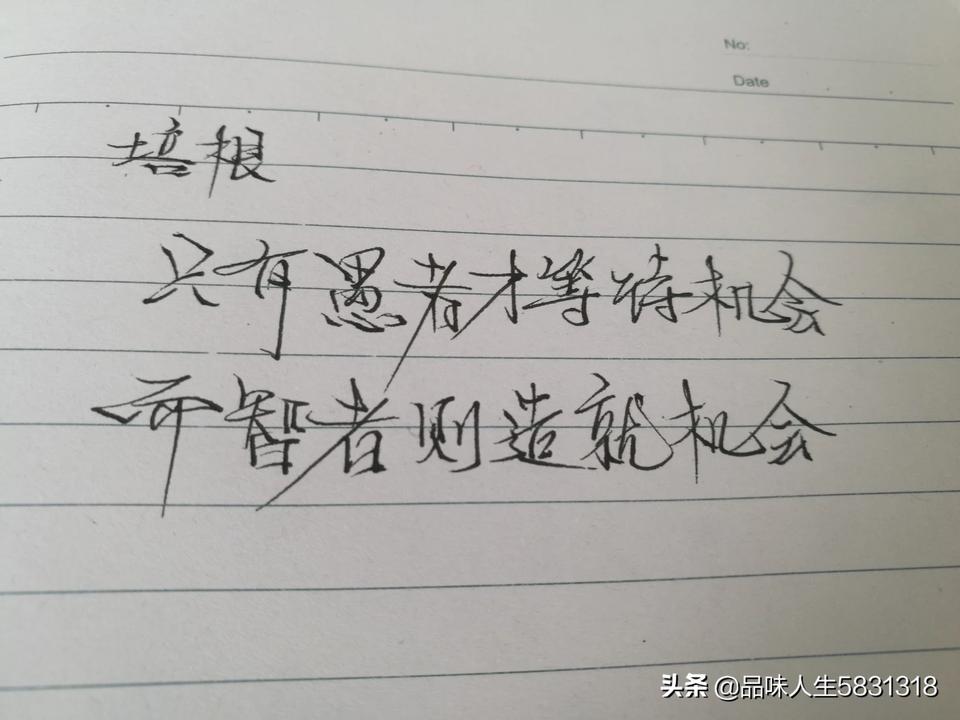 No:
Date
培根
只有愚者才等待机会
而智者则造就机会
头条 @品味人生5831318